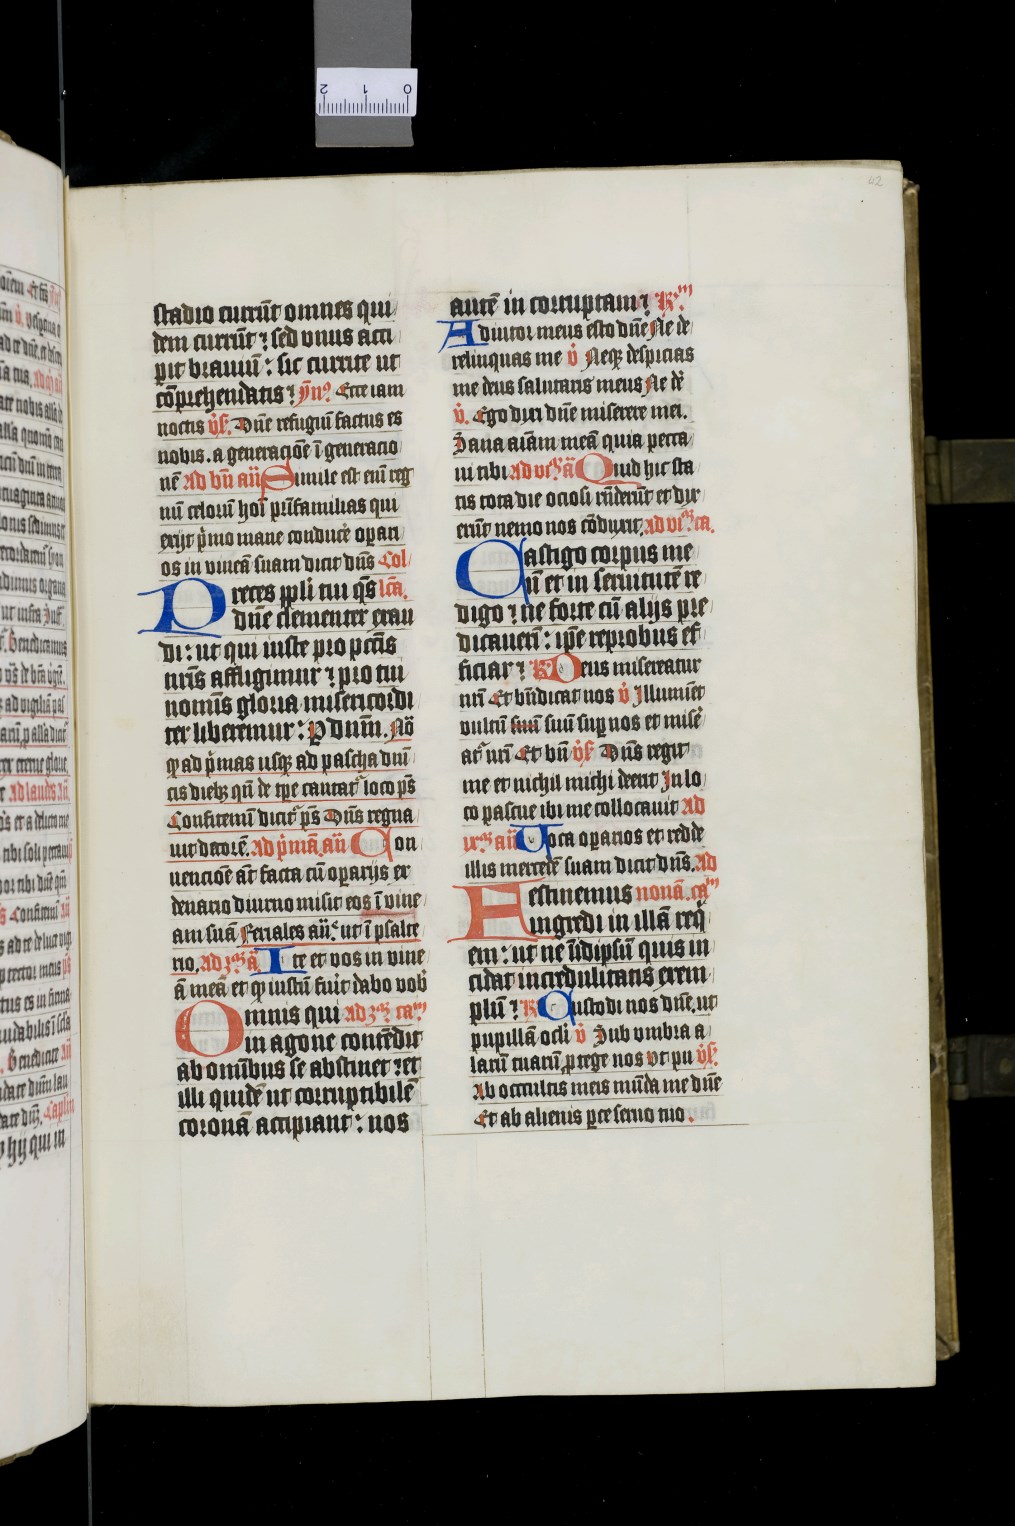 42
stadio currūt omnes qui
dem currūt ⁊ sed vnus acci
pit brauiū : sic currite ut
cōprehendatis ⁊ ym̄⁹ Ecce iam
noctis v̇s̄. Dn̄e refugiū factus es
nobis. a generacōe ī generacio
nē Ad bn̄ an̄ Simile est eni reg
nū celorū hoī pr̄ifamilias qui
exijt p̄mo mane conducē opari
os in vineā suam dicit dn̄s Col
Preces ppl̄i tui qs̄ lc̄a.
dn̄e clementer exau
di : ut qui iuste pro pcc̄is
nr̄is affligimur ⁊ pro tui
nomīs gloria misericordi
ter liberemur : P dnūm. Nō
ꝙ ad p̄mas usꝗ ad pascha dnī
cis diebꝫ qn̄ de tp̄e cantat̄ loco ps̄
Confitemī dicit̄ ps̄ Dn̄s regna
uit decorē. Ad p̄mā an̄ Con
uencōe āt facta cū oparijs ex
denario diurno misit eos ī vine
am suā Feriales an̄. ut ī psalte
rio, Ad ȝā a. Ite et vos in vine
ā meā et ꝙ iustū fuīt dabo vob̄
Omnis qui ad ȝā cam̄
in agone contēdit
ab omībus se abstinet ⁊ et
illi quidē ut corruptibilē
coronā accipiant : nos
autē in corruptam ⁊ R̄m̄
Adiutor meus esto dn̄e Ne de
relinquas me v̇ Neqꝫ despicias
me deus salutaris meus Ne dē
v̇. Ego dixi dn̄e miserere mei.
Sana aīam meā quia pecca
ui tibi ad vi a Quid hic sta
tis tota die ociosi rn̄derūt et dix
erūt nemo nos cōduxit, ad vi ca.
Castigo corpus me
ū et in seruitutē re
digo ⁊ ne forte cū alijs pre
dicauerī : ip̄e reprobus ef
ficiar ⁊ R̄ Deus misereatur
nr̄i Et bn̄dicat nos v̇ Illumīet
vultū suū suū sup nos et misē
at̄ nr̄i Et bn̄ v̇s̄. Dn̄s regit
me et nichil michi deerit In lo
co pascue ibi me collocauit Ad
ixā an̄ Voca oparios et redde
illis mercedē suam dicit dn̄s. Ad
Festinemus nonā. cam̄
ingredi in illā req̄
em : ut ne īidipsū quis in
cidat incredulitatis exem
plū ⁊ R̄ Custodi nos dn̄e, ut
pupillā ocl̄i v̇ Sub vmbra a
larū tuarū ꝓtege nos vt pu v̇s̄.
Ab occultis meis mūda me dn̄e
Et ab alienis ꝑce seruo tuo.